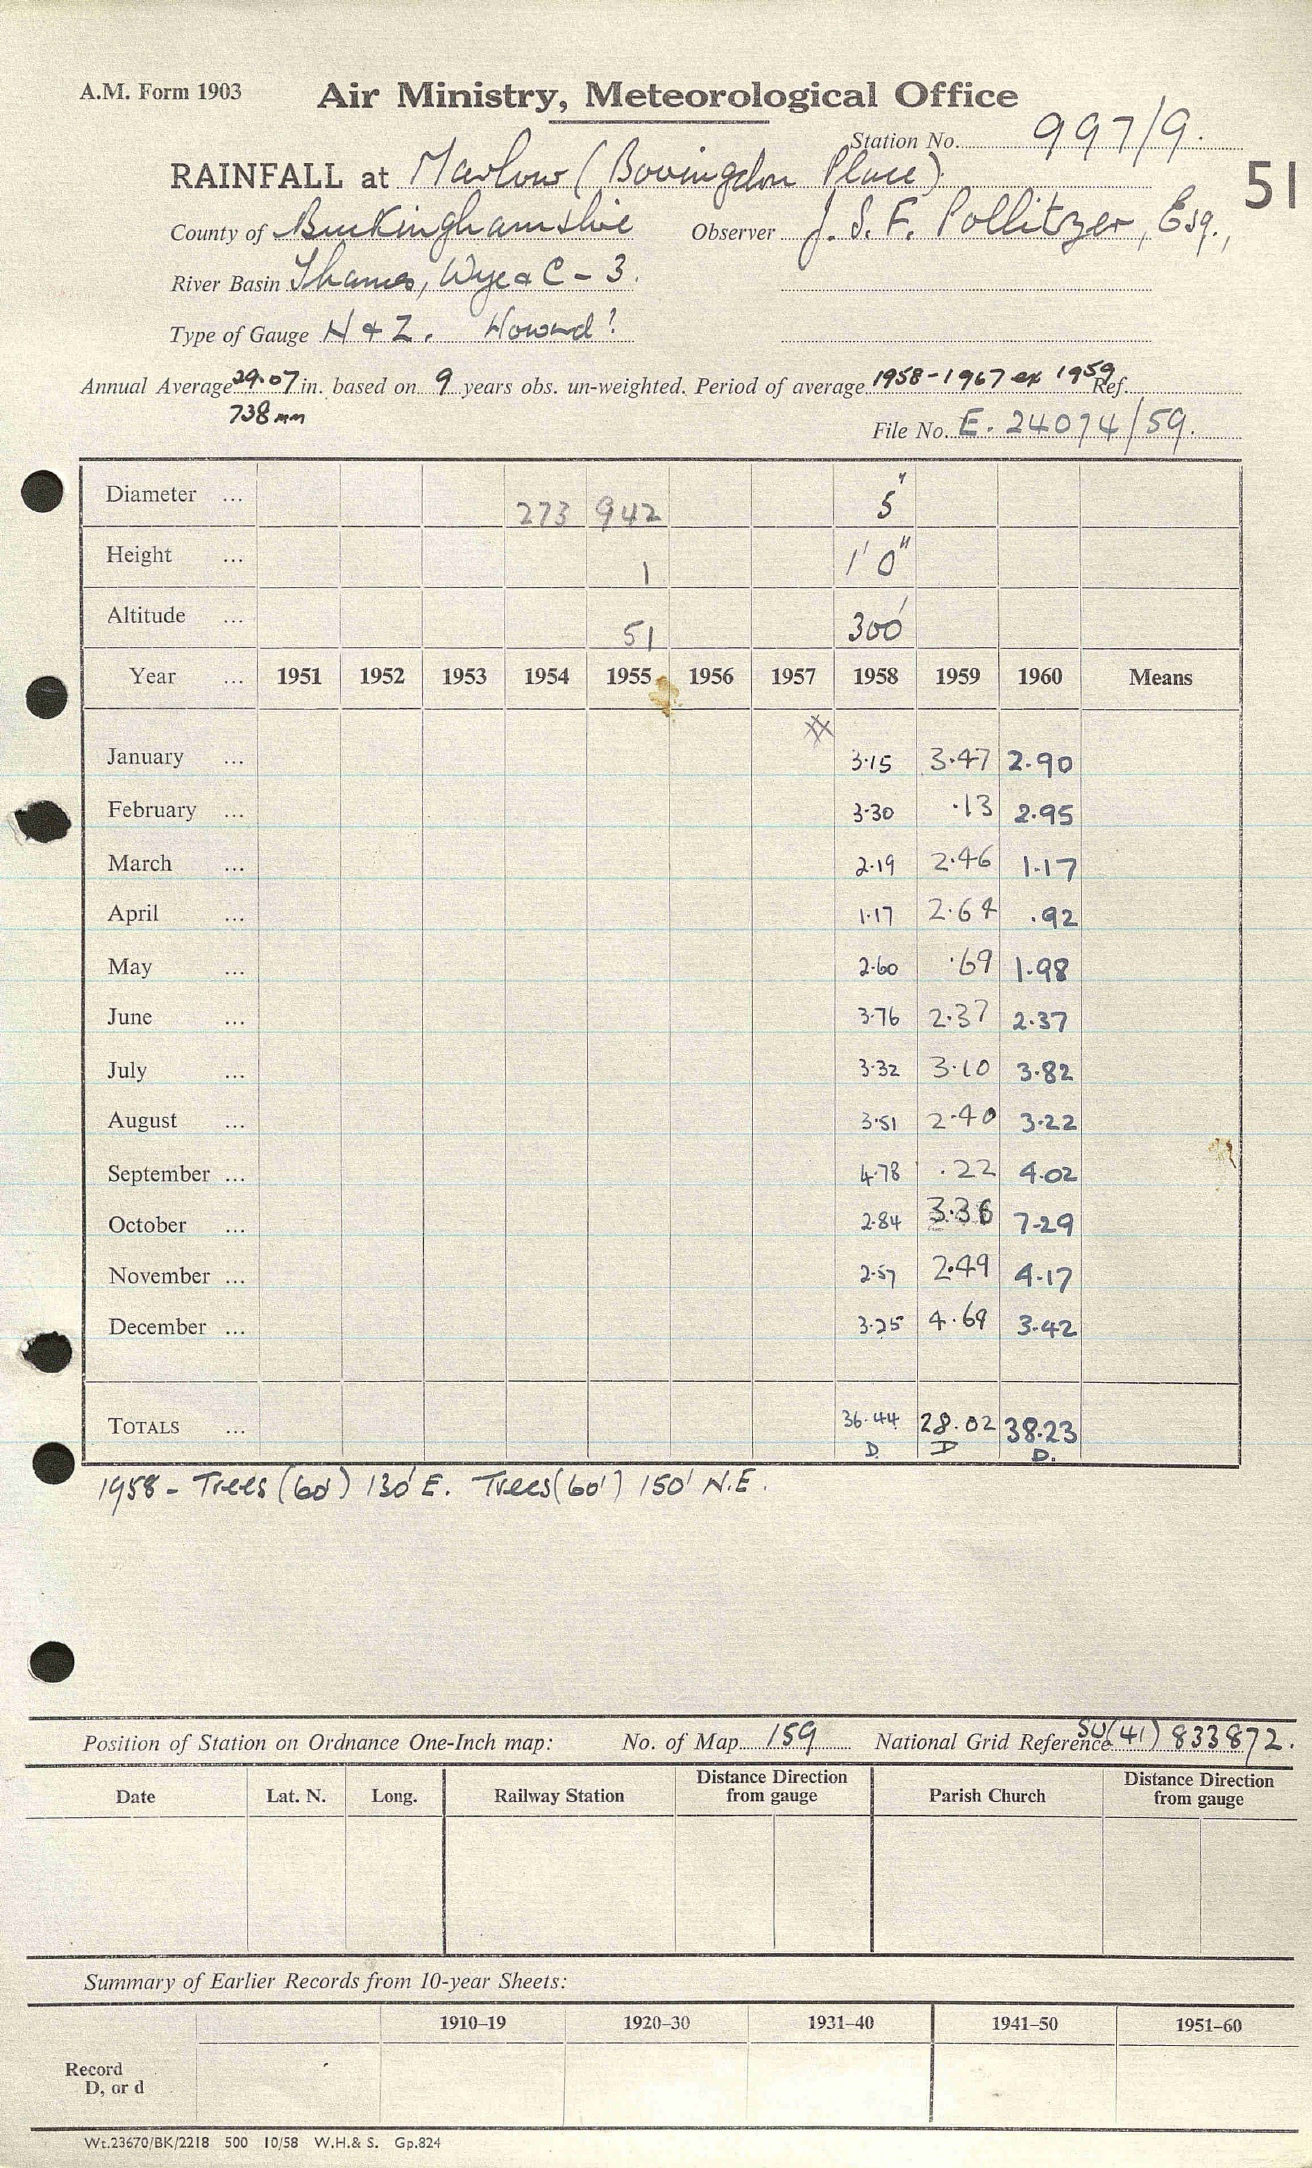 A.M. Form 1903
Air Ministry, Meteorological Office
Station No. 997/9.
RAINFALL at Marlow (Bovingdon Place)
51
County of Buckinghamshire Observer J. S. F. Pollitzer, Esq.,
River Basin Thames, Wye & C - 3.
Type of Gauge N & Z. Howard?
Annual Average 29.07 in. based on 9 years obs. un-weighted. Period of average 1958-1967 ex 1959 Ref.
738 mm
File No. E. 24074/59.
Diameter ... 273 942 5"
Height ... 1 1' 0"
Altitude ... 51 300'
Year ... 1951 1952 1953 1954 1955 1956 1957 1958 1959 1960 Means
January ... 3.15 3.47 2.90
February ... 3.30 .13 2.95
March ... 2.19 2.46 1.17
April ... 1.17 2.64 .92
May ... 2.60 .69 1.98
June ... 3.76 2.37 2.37
July ... 3.32 3.10 3.82
August ... 3.51 2.40 3.22
September ... 4.78 .22 4.02
October ... 2.84 3.36 7.29
November ... 2.57 2.49 4.17
December ... 3.25 4.69 3.42
TOTALS ... 36.44 28.02 38.23
D. D D.
1958 - Trees (60') 130' E. Trees (60') 150' N.E.
Position of Station on Ordnance One-Inch map: No. of Map 159 National Grid Reference SU(41) 833872.
Date Lat. N. Long. Railway Station Distance Direction from gauge Parish Church Distance Direction from gauge
Summary of Earlier Records from 10-year Sheets:
1910–19 1920–30 1931–40 1941–50 1951–60
Record
D, or d
Wt.23670/BK/2218 500 10/58 W.H.& S. Gp.824